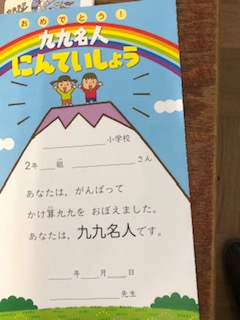 おめでとう！
九九名人
にんていしょう
小学校
2年 組 さん
あなたは、がんばって
かけ算九九を おぼえました。
あなたは、九九名人です。
年 月 日
先生